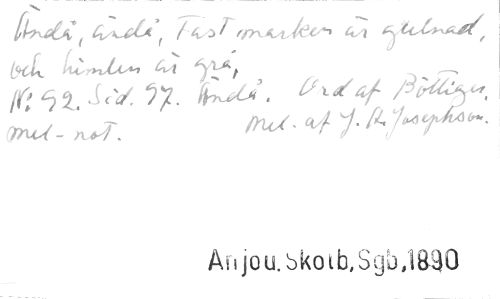 Ändå, ändå, Fast marken är gulnad,
och himlen är grå,
N: 92. Sid. 97. Ändå. Ord af Böttiger.
mel-not. Mel. af J. A. Josephson.
Anjou. Skolb, Sgb, 1890